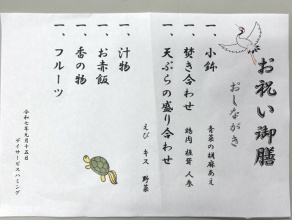 お祝い御膳
おしながき
一、小鉢
青菜の胡麻あえ
一、焚き合わせ
鶏肉 椎茸 人参
一、天ぷらの盛り合わせ
えび キス 野菜
一、汁物
一、お赤飯
一、香の物
一、フルーツ
令和七年九月十五日
デイサービスハミング